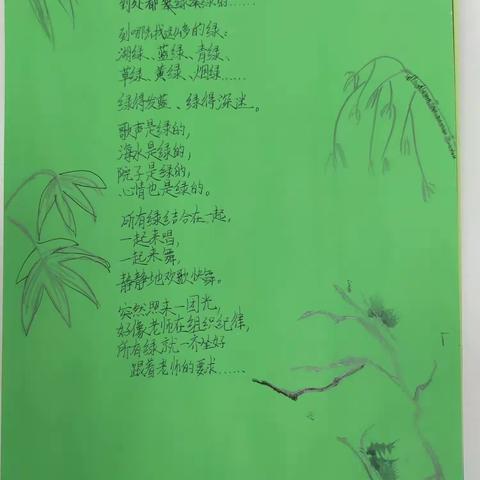 到处都是绿绿的……
到哪去找这么多的绿:
湖绿、蓝绿、青绿、
草绿、黄绿、烟绿……
绿得发蓝、绿得深迷。
歌声是绿的,
海水是绿的,
院子是绿的,
心情也是绿的。
所有绿结合在一起,
一起来唱,
一起来舞,
静静地欢歌快舞。
突然照来一团光,
好像老师在组织纪律,
所有绿就一齐坐好
跟着老师的要求……